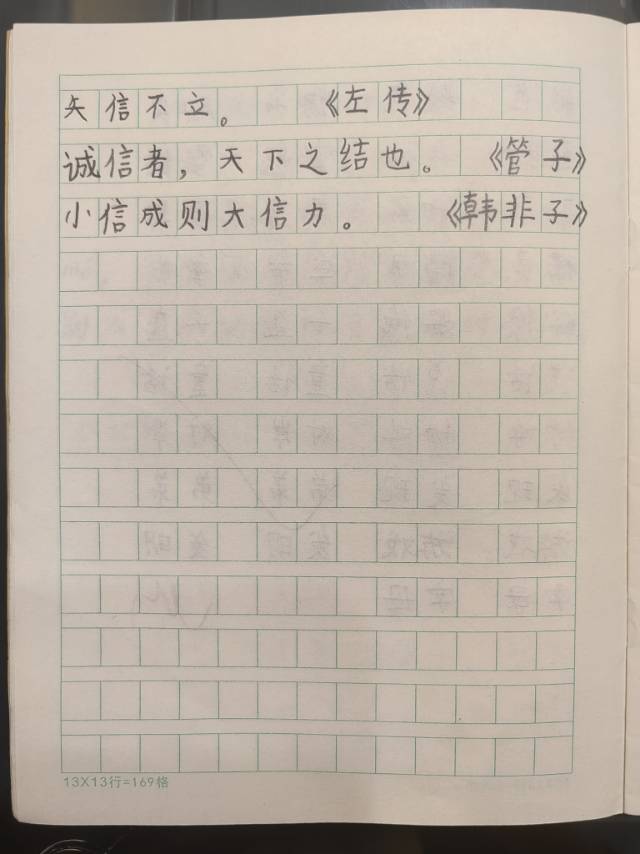 矢信不立。 《左传》
诚信者，天下之结也。 《管子》
小信成则大信力。 《韩非子》
13X13行=169格